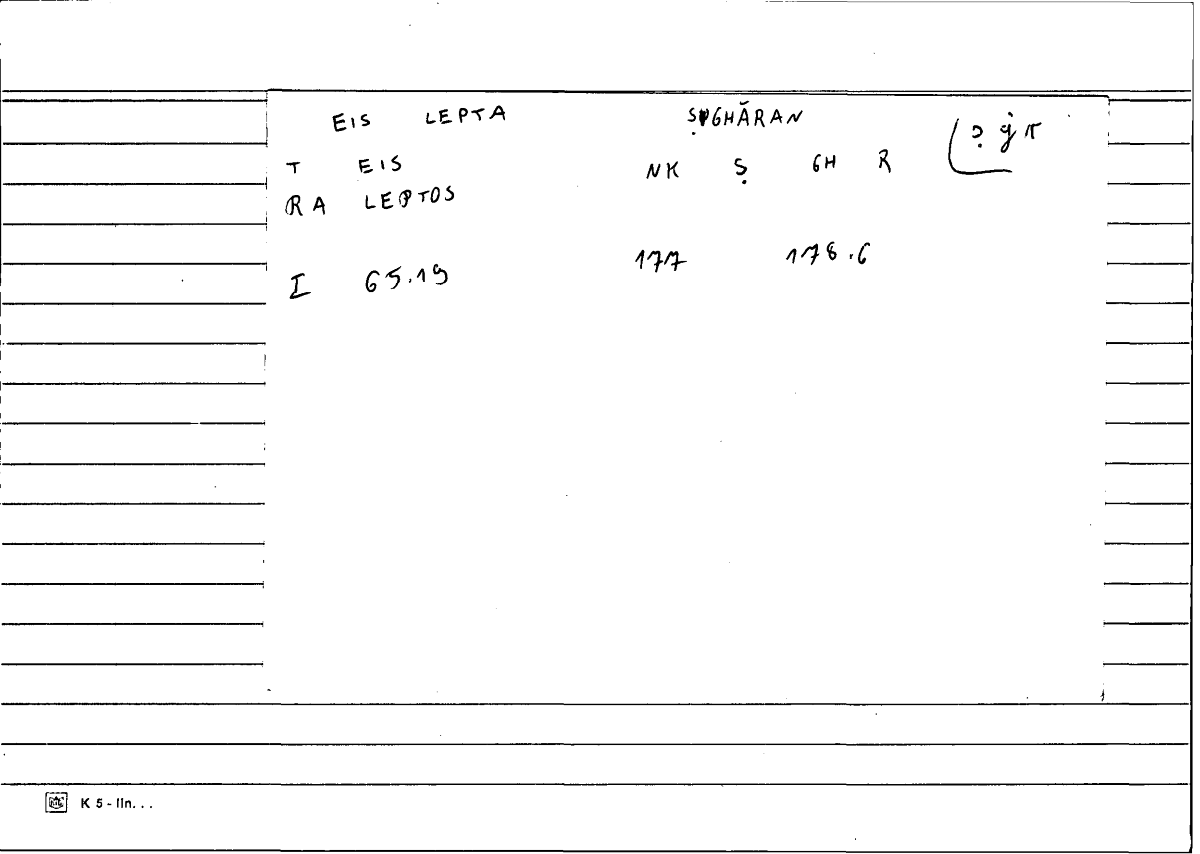 EIS LEPTA ṢIGHĀRAN
T EIS NK Ṣ GH R ṣ ġ r
RA LEPTOS
I 65.19 177 178.6
K 5 - lln. . .